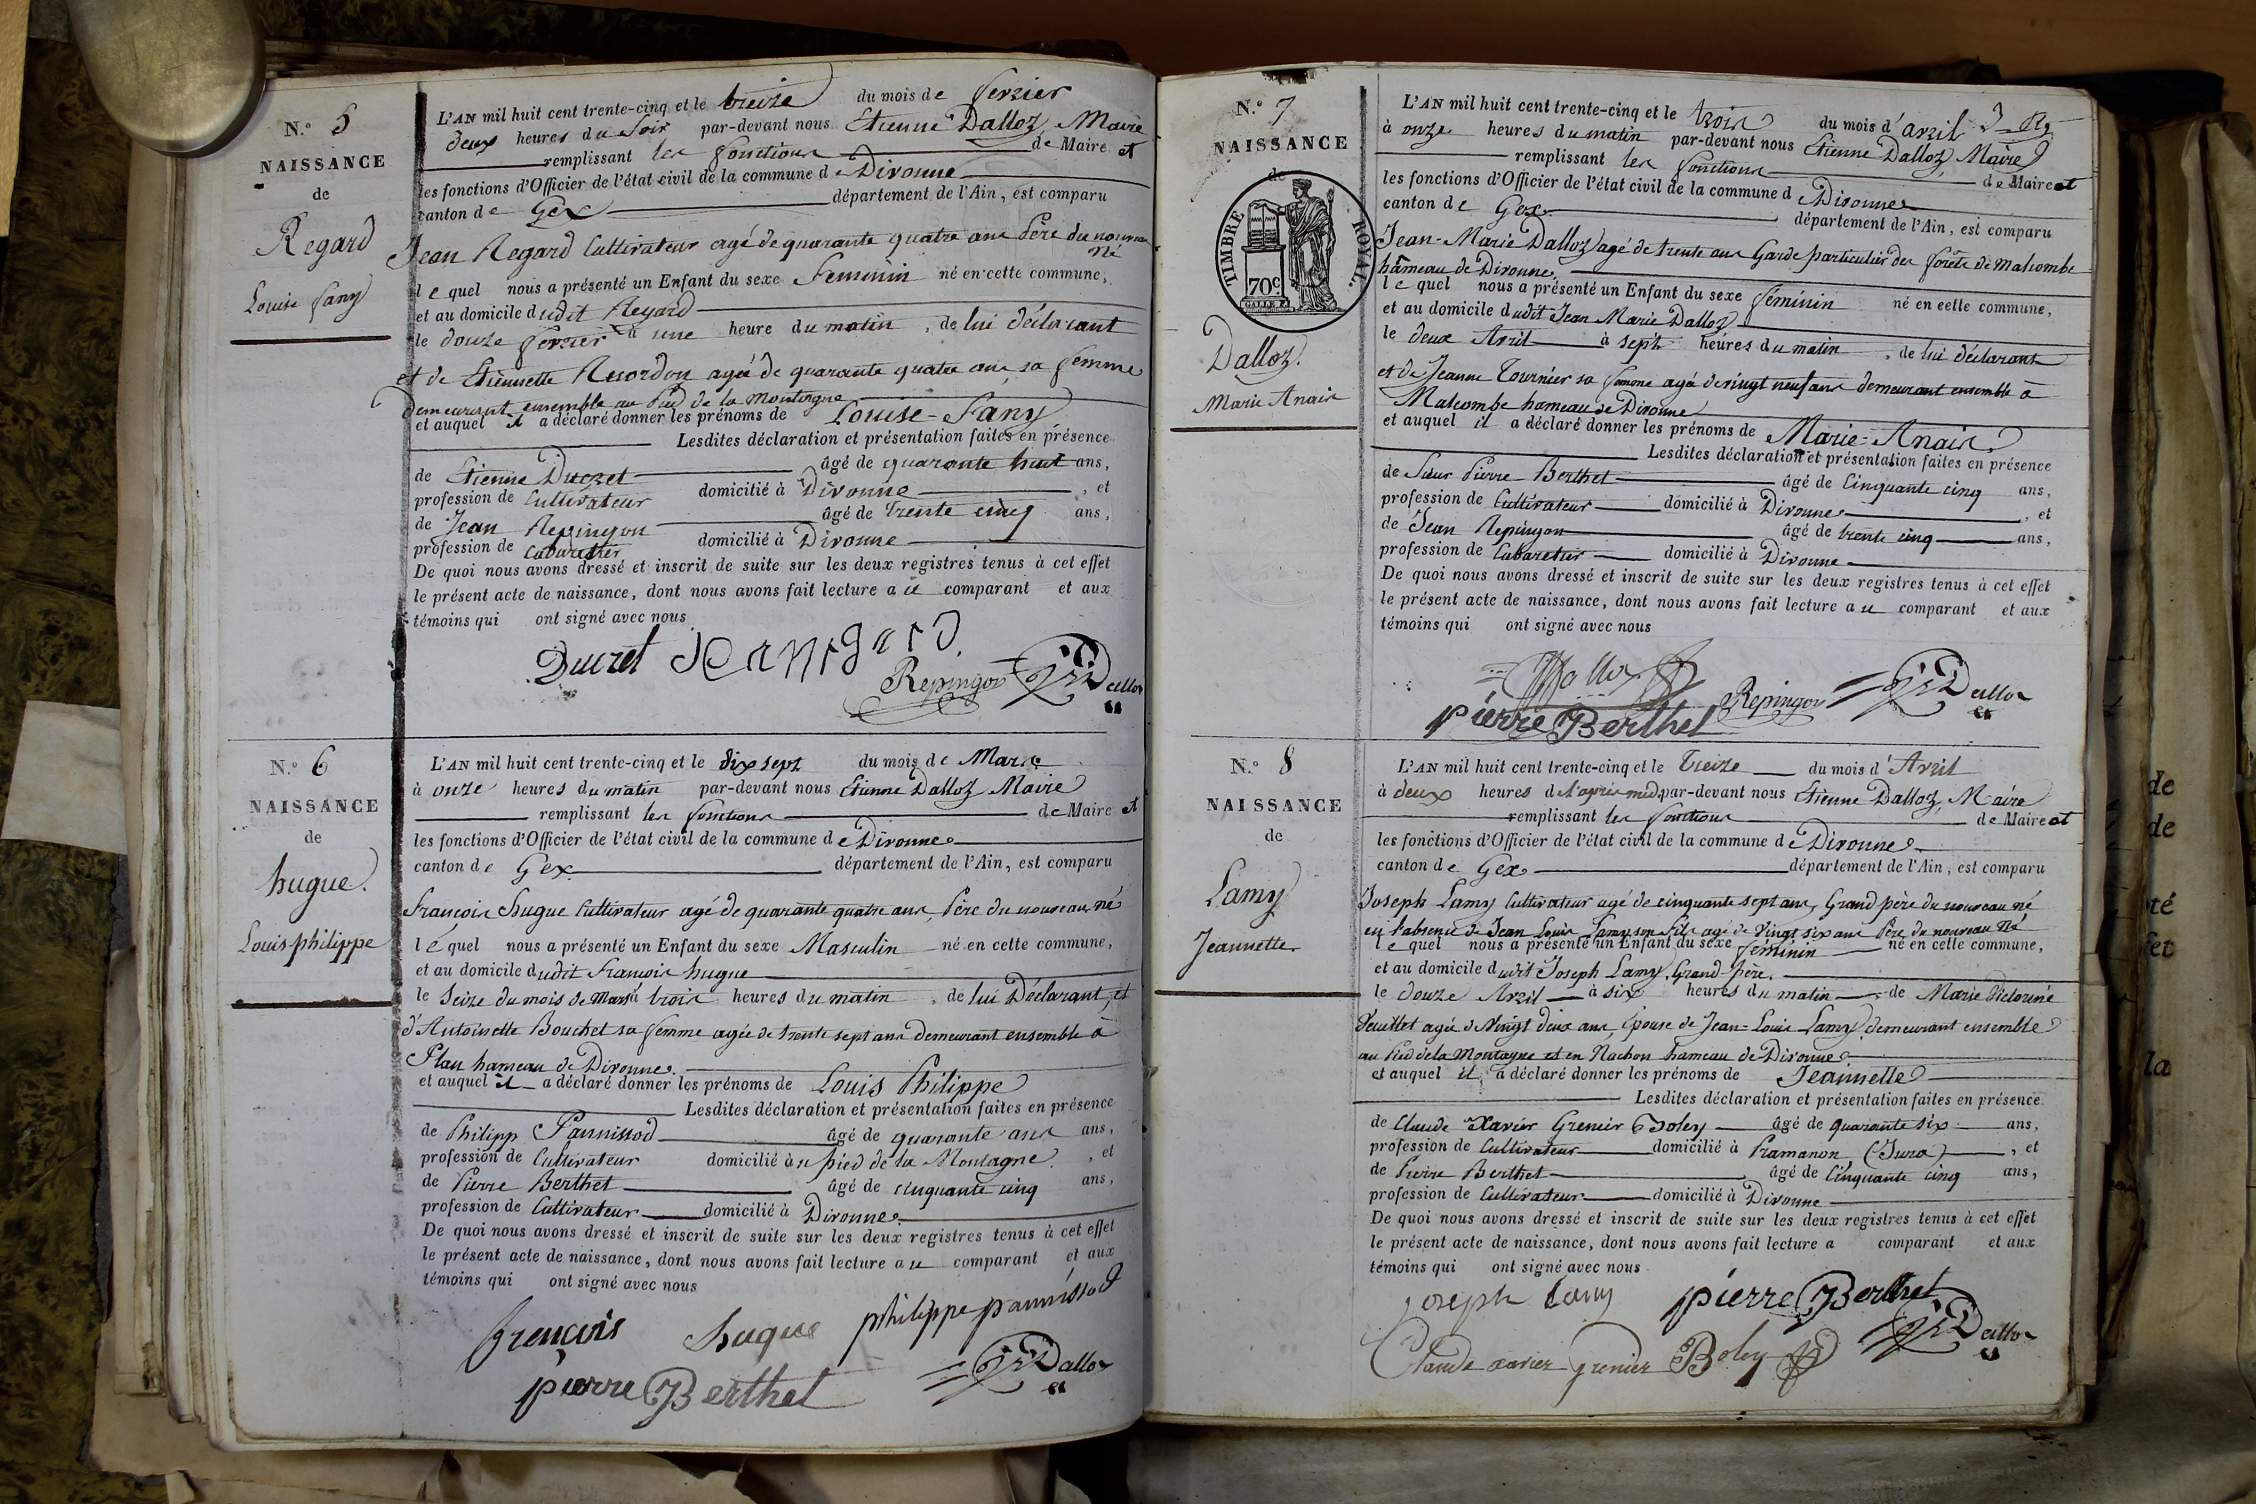 N.° 5
NAISSANCE
de
Regard
Louise Fany
L'AN mil huit cent trente-cinq et le treize du mois de fevrier
deux heures du soir par-devant nous Etienne Dalloz, Maire
remplissant les fonctions de Maire et
les fonctions d'Officier de l'état civil de la commune de Divonne
canton de Gex département de l'Ain, est comparu
Jean Regard Cultivateur agé de quarante quatre ans Père du nouveau
né
lequel nous a présenté un Enfant du sexe Feminin né en cette commune,
et au domicile dudit Regard
le douze fevrier à une heure du matin, de lui déclarant
et de Etiennette Ruordon agée de quarante quatre ans, sa femme
demeurant ensemble au Pied de la Montagne
et auquel il a déclaré donner les prénoms de Louise-Fany
Lesdites déclaration et présentation faites en présence
de Etienne Ducret âgé de quarante huit ans,
profession de Cultivateur domicilié à Divonne, et
de Jean Repingon âgé de trente cinq ans,
profession de Cabaretier domicilié à Divonne
De quoi nous avons dressé et inscrit de suite sur les deux registres tenus à cet effet
le présent acte de naissance, dont nous avons fait lecture au comparant et aux
témoins qui ont signé avec nous
Ducret
Repingon Dalloz
N.° 6
NAISSANCE
de
hugue.
Louis philippe
L'AN mil huit cent trente-cinq et le dix sept du mois de Mars
à onze heures du matin par-devant nous Etienne Dalloz Maire
remplissant les fonctions de Maire et
les fonctions d'Officier de l'état civil de la commune de Divonne
canton de Gex département de l'Ain, est comparu
François hugue Cultivateur agé de quarante quatre ans, Père du nouveau né
lequel nous a présenté un Enfant du sexe Masculin né en cette commune,
et au domicile dudit François hugue
le Seize du mois de Mars à trois heures du matin, de lui Déclarant, et
d'Antoinette Bouchet sa femme agée de trente sept ans demeurant ensemble à
Plan hameau de Divonne.
et auquel il a déclaré donner les prénoms de Louis Philippe
Lesdites déclaration et présentation faites en présence
de Philipp Pannissod âgé de quarante ans ans,
profession de Cultivateur domicilié au pied de la Montagne, et
de Pierre Berthet âgé de cinquante cinq ans,
profession de Cultivateur domicilié à Divonne.
De quoi nous avons dressé et inscrit de suite sur les deux registres tenus à cet effet
le présent acte de naissance, dont nous avons fait lecture au comparant et aux
témoins qui ont signé avec nous
françois hugue philippe pannissod
pierre Berthet Dalloz
N.° 7
NAISSANCE
de
TIMBRE ROYAL.
70c.
Dalloz.
Marie Anais
L'AN mil huit cent trente-cinq et le trois du mois d'avril
à onze heures du matin par-devant nous Etienne Dalloz, Maire
remplissant les fonctions de Maire et
les fonctions d'Officier de l'état civil de la commune de Divonne
canton de Gex département de l'Ain, est comparu
Jean-Marie Dalloz agé de trente ans Garde particulier des forêts de Malcombe
hameau de Divonne,
lequel nous a présenté un Enfant du sexe féminin né en cette commune,
et au domicile dudit Jean Marie Dalloz
le deux Avril à sept heures du matin, de lui déclarant
et de Jeanne Tournier sa femme agée de vingt neuf ans demeurant ensemble à
Malcombe hameau de Divonne
et auquel il a déclaré donner les prénoms de Marie-Anais
Lesdites déclaration et présentation faites en présence
de Sieur Pierre Berthet âgé de Cinquante cinq ans,
profession de Cultivateur domicilié à Divonne, et
de Jean Repingon âgé de trente cinq ans,
profession de Cabaretier domicilié à Divonne
De quoi nous avons dressé et inscrit de suite sur les deux registres tenus à cet effet
le présent acte de naissance, dont nous avons fait lecture au comparant et aux
témoins qui ont signé avec nous
Dalloz
pierre Berthet Repingon Dalloz
N.° 8
NAISSANCE
de
Lamy
Jeannette
L'AN mil huit cent trente-cinq et le Treize du mois d'Avril
à deux heures de l'après midi par-devant nous Etienne Dalloz, Maire
remplissant les fonctions de Maire et
les fonctions d'Officier de l'état civil de la commune de Divonne
canton de Gex département de l'Ain, est comparu
Joseph Lamy Cultivateur agé de cinquante sept ans, Grand père du nouveau né
en l'absence de Jean Louis Lamy son fils agé de Vingt six ans Père du nouveau Né
lequel nous a présenté un Enfant du sexe féminin né en cette commune,
et au domicile dudit Joseph Lamy, Grand-père.
le douze Avril à six heures du matin, de Marie Victorine
Feuillet agée de Vingt deux ans, Epouse de Jean-Louis Lamy, demeurant ensemble
au Pied de la Montagne et en Nachon hameau de Divonne
et auquel il a déclaré donner les prénoms de Jeannette
Lesdites déclaration et présentation faites en présence
de Claude Xavier Grenier Boley âgé de quarante six ans,
profession de Cultivateur domicilié à Pramanon (Jura), et
de Pierre Berthet âgé de Cinquante cinq ans,
profession de Cultivateur domicilié à Divonne
De quoi nous avons dressé et inscrit de suite sur les deux registres tenus à cet effet
le présent acte de naissance, dont nous avons fait lecture a comparant et aux
témoins qui ont signé avec nous
joseph Lamy pierre Berthet
Claude xavier Grenier Boley Dalloz
de
de
té
fet
la